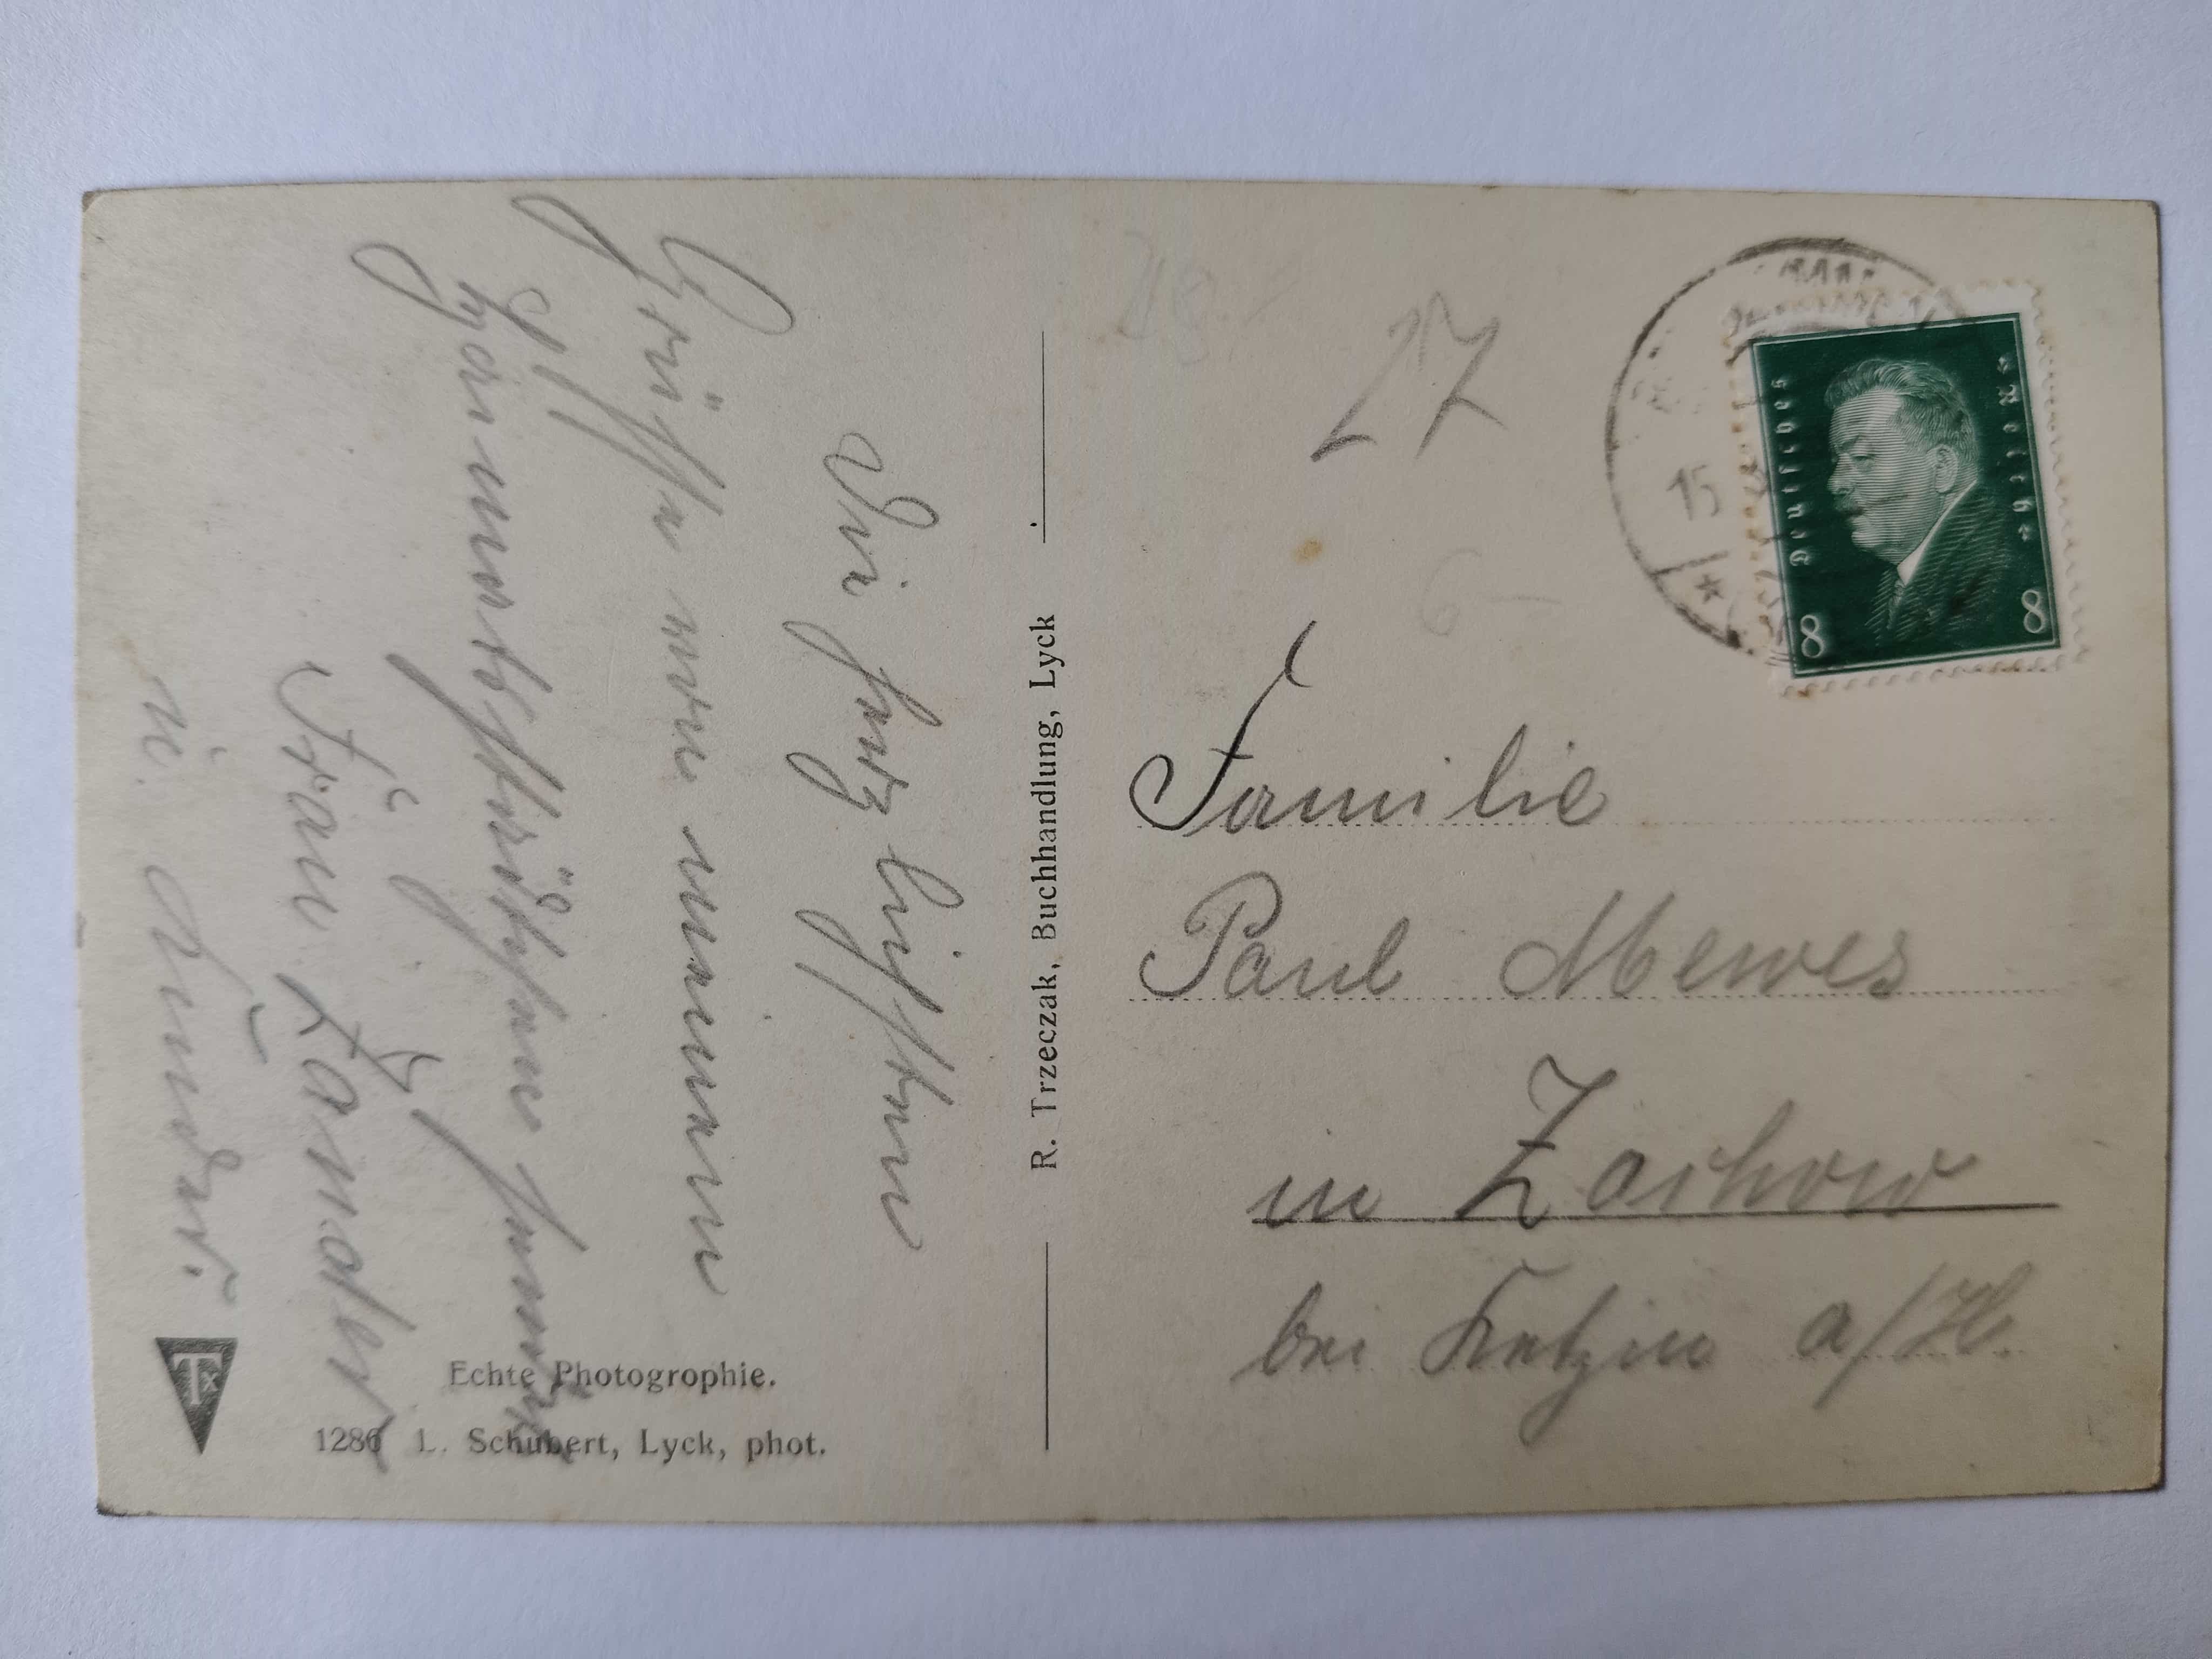 Die herzlichsten
Grüße von meinem
Frau Zander
u. Kinder.
Echte Photogrophie.
1286 L. Schubert, Lyck, phot.
R. Trzeczak, Buchhandlung, Lyck
27
6 —
15
Deutsches Reich
8 8
Familie
Paul Mewes
in Zachow
bei Ketzin a/H.